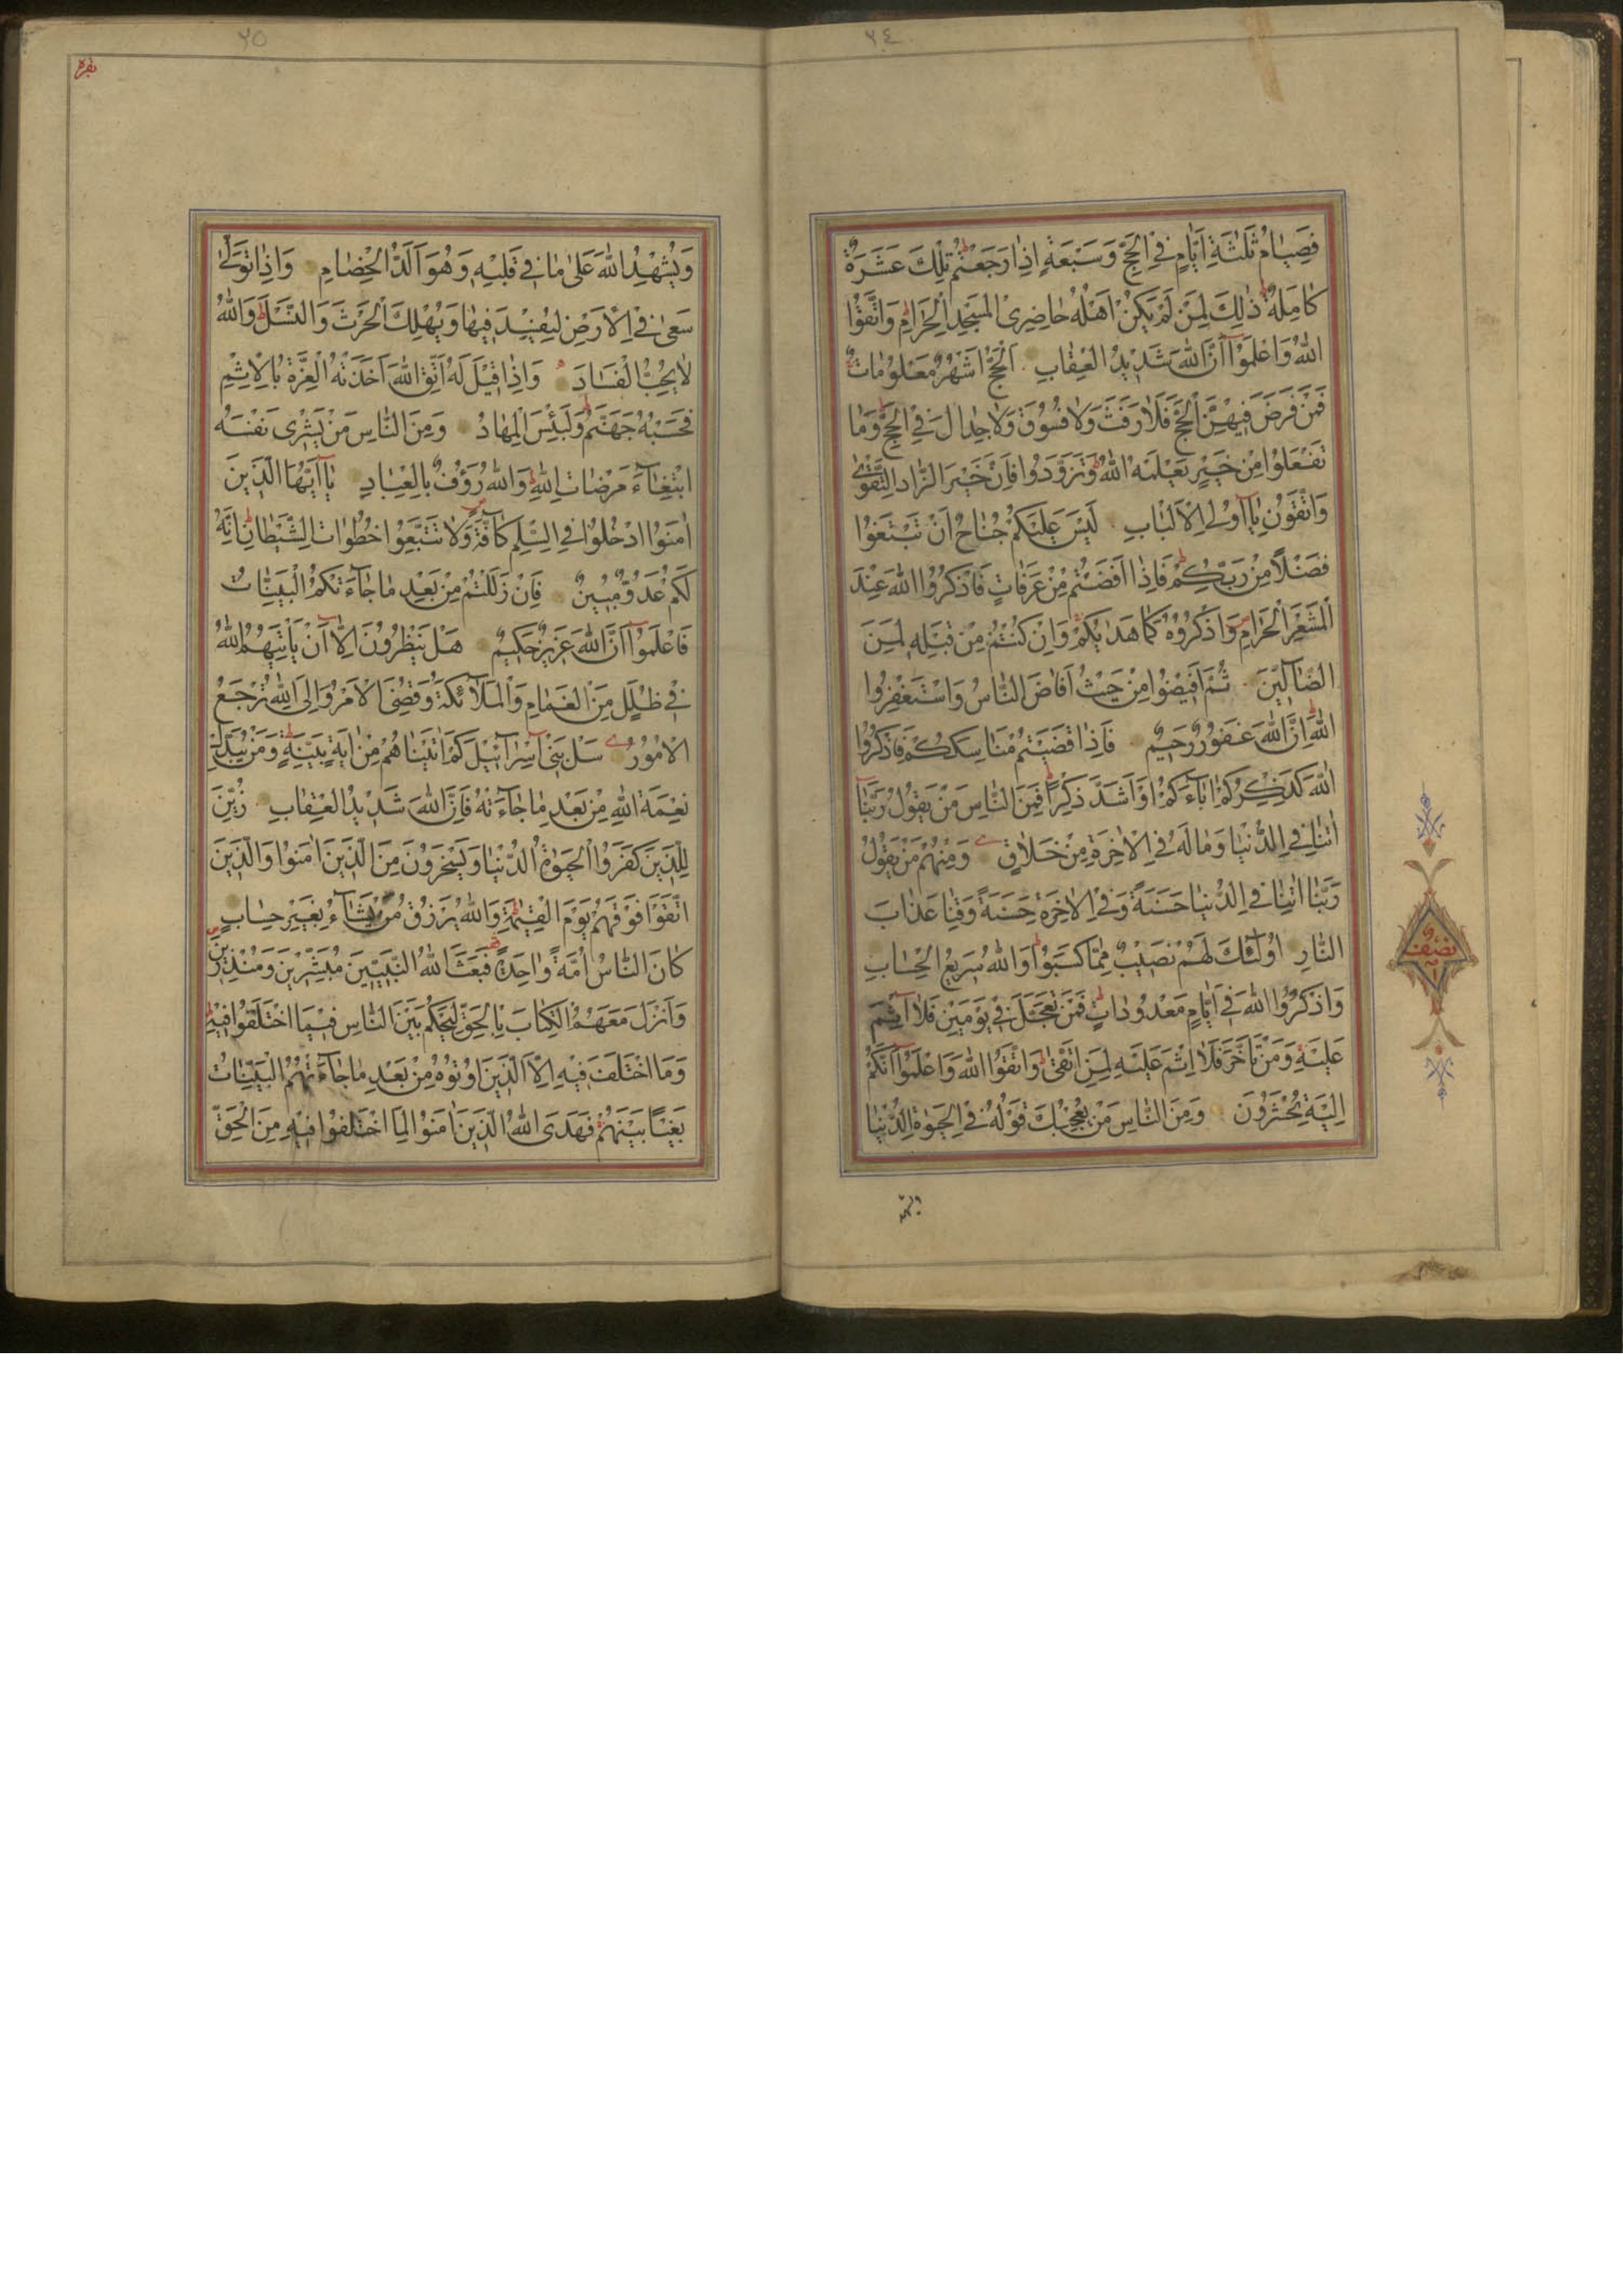 ٢٤
فَصِيَامُ ثَلٰثَةِ اَيَّامٍ فِي الْحَجِّ وَسَبْعَةٍ اِذَا رَجَعْتُمْ تِلْكَ عَشَرَةٌ
كَامِلَةٌ ذٰلِكَ لِمَنْ لَمْ يَكُنْ اَهْلُهُ حَاضِرِى الْمَسْجِدِ الْحَرَامِ وَاتَّقُوا
اللهَ وَاعْلَمُوا اَنَّ اللهَ شَدِيدُ الْعِقَابِ اَلْحَجُّ اَشْهُرٌ مَعْلُومَاتٌ
فَمَنْ فَرَضَ فِيهِنَّ الْحَجَّ فَلَا رَفَثَ وَلَا فُسُوقَ وَلَا جِدَالَ فِي الْحَجِّ وَمَا
تَفْعَلُوا مِنْ خَيْرٍ يَعْلَمْهُ اللهُ وَتَزَوَّدُوا فَاِنَّ خَيْرَ الزَّادِ التَّقْوٰى
وَاتَّقُونِ يَا اُولِى الْاَلْبَابِ لَيْسَ عَلَيْكُمْ جُنَاحٌ اَنْ تَبْتَغُوا
فَضْلًا مِنْ رَبِّكُمْ فَاِذَا اَفَضْتُمْ مِنْ عَرَفَاتٍ فَاذْكُرُوا اللهَ عِنْدَ
الْمَشْعَرِ الْحَرَامِ وَاذْكُرُوهُ كَمَا هَدٰيكُمْ وَاِنْ كُنْتُمْ مِنْ قَبْلِهِ لَمِنَ
الضَّالِّينَ ثُمَّ اَفِيضُوا مِنْ حَيْثُ اَفَاضَ النَّاسُ وَاسْتَغْفِرُوا
اللهَ اِنَّ اللهَ غَفُورٌ رَحِيمٌ فَاِذَا قَضَيْتُمْ مَنَاسِكَكُمْ فَاذْكُرُوا
اللهَ كَذِكْرِكُمْ اٰبَاءَكُمْ اَوْ اَشَدَّ ذِكْرًا فَمِنَ النَّاسِ مَنْ يَقُولُ رَبَّنَا
اٰتِنَا فِي الدُّنْيَا وَمَا لَهُ فِي الْاٰخِرَةِ مِنْ خَلَاقٍ وَمِنْهُمْ مَنْ يَقُولُ
رَبَّنَا اٰتِنَا فِي الدُّنْيَا حَسَنَةً وَفِي الْاٰخِرَةِ حَسَنَةً وَقِنَا عَذَابَ
النَّارِ اُولٰئِكَ لَهُمْ نَصِيبٌ مِمَّا كَسَبُوا وَاللهُ سَرِيعُ الْحِسَابِ
وَاذْكُرُوا اللهَ فِي اَيَّامٍ مَعْدُودَاتٍ فَمَنْ تَعَجَّلَ فِي يَوْمَيْنِ فَلَا اِثْمَ
عَلَيْهِ وَمَنْ تَاَخَّرَ فَلَا اِثْمَ عَلَيْهِ لِمَنِ اتَّقٰى وَاتَّقُوا اللهَ وَاعْلَمُوا اَنَّكُمْ
اِلَيْهِ تُحْشَرُونَ وَمِنَ النَّاسِ مَنْ يُعْجِبُكَ قَوْلُهُ فِي الْحَيٰوةِ الدُّنْيَا
نصف
٢٥
بقره
وَيُشْهِدُ اللهَ عَلٰى مَا فِي قَلْبِهِ وَهُوَ اَلَدُّ الْخِصَامِ وَاِذَا تَوَلّٰى
سَعٰى فِي الْاَرْضِ لِيُفْسِدَ فِيهَا وَيُهْلِكَ الْحَرْثَ وَالنَّسْلَ وَاللهُ
لَا يُحِبُّ الْفَسَادَ وَاِذَا قِيلَ لَهُ اتَّقِ اللهَ اَخَذَتْهُ الْعِزَّةُ بِالْاِثْمِ
فَحَسْبُهُ جَهَنَّمُ وَلَبِئْسَ الْمِهَادُ وَمِنَ النَّاسِ مَنْ يَشْرِى نَفْسَهُ
ابْتِغَاءَ مَرْضَاتِ اللهِ وَاللهُ رَؤُفٌ بِالْعِبَادِ يَا اَيُّهَا الَّذِينَ
اٰمَنُوا ادْخُلُوا فِي السِّلْمِ كَافَّةً وَلَا تَتَّبِعُوا خُطُوَاتِ الشَّيْطَانِ اِنَّهُ
لَكُمْ عَدُوٌّ مُبِينٌ فَاِنْ زَلَلْتُمْ مِنْ بَعْدِ مَا جَاءَتْكُمُ الْبَيِّنَاتُ
فَاعْلَمُوا اَنَّ اللهَ عَزِيزٌ حَكِيمٌ هَلْ يَنْظُرُونَ اِلَّا اَنْ يَأْتِيَهُمُ اللهُ
فِي ظُلَلٍ مِنَ الْغَمَامِ وَالْمَلَائِكَةُ وَقُضِيَ الْاَمْرُ وَاِلَى اللهِ تُرْجَعُ
الْاُمُورُ سَلْ بَنِي اِسْرَائِيلَ كَمْ اٰتَيْنَاهُمْ مِنْ اٰيَةٍ بَيِّنَةٍ وَمَنْ يُبَدِّلْ
نِعْمَةَ اللهِ مِنْ بَعْدِ مَا جَاءَتْهُ فَاِنَّ اللهَ شَدِيدُ الْعِقَابِ زُيِّنَ
لِلَّذِينَ كَفَرُوا الْحَيٰوةُ الدُّنْيَا وَيَسْخَرُونَ مِنَ الَّذِينَ اٰمَنُوا وَالَّذِينَ
اتَّقَوْا فَوْقَهُمْ يَوْمَ الْقِيٰمَةِ وَاللهُ يَرْزُقُ مَنْ يَشَاءُ بِغَيْرِ حِسَابٍ
كَانَ النَّاسُ اُمَّةً وَاحِدَةً فَبَعَثَ اللهُ النَّبِيِّينَ مُبَشِّرِينَ وَمُنْذِرِينَ
وَاَنْزَلَ مَعَهُمُ الْكِتَابَ بِالْحَقِّ لِيَحْكُمَ بَيْنَ النَّاسِ فِيمَا اخْتَلَفُوا فِيهِ
وَمَا اخْتَلَفَ فِيهِ اِلَّا الَّذِينَ اُوتُوهُ مِنْ بَعْدِ مَا جَاءَتْهُمُ الْبَيِّنَاتُ
بَغْيًا بَيْنَهُمْ فَهَدَى اللهُ الَّذِينَ اٰمَنُوا لِمَا اخْتَلَفُوا فِيهِ مِنَ الْحَقِّ